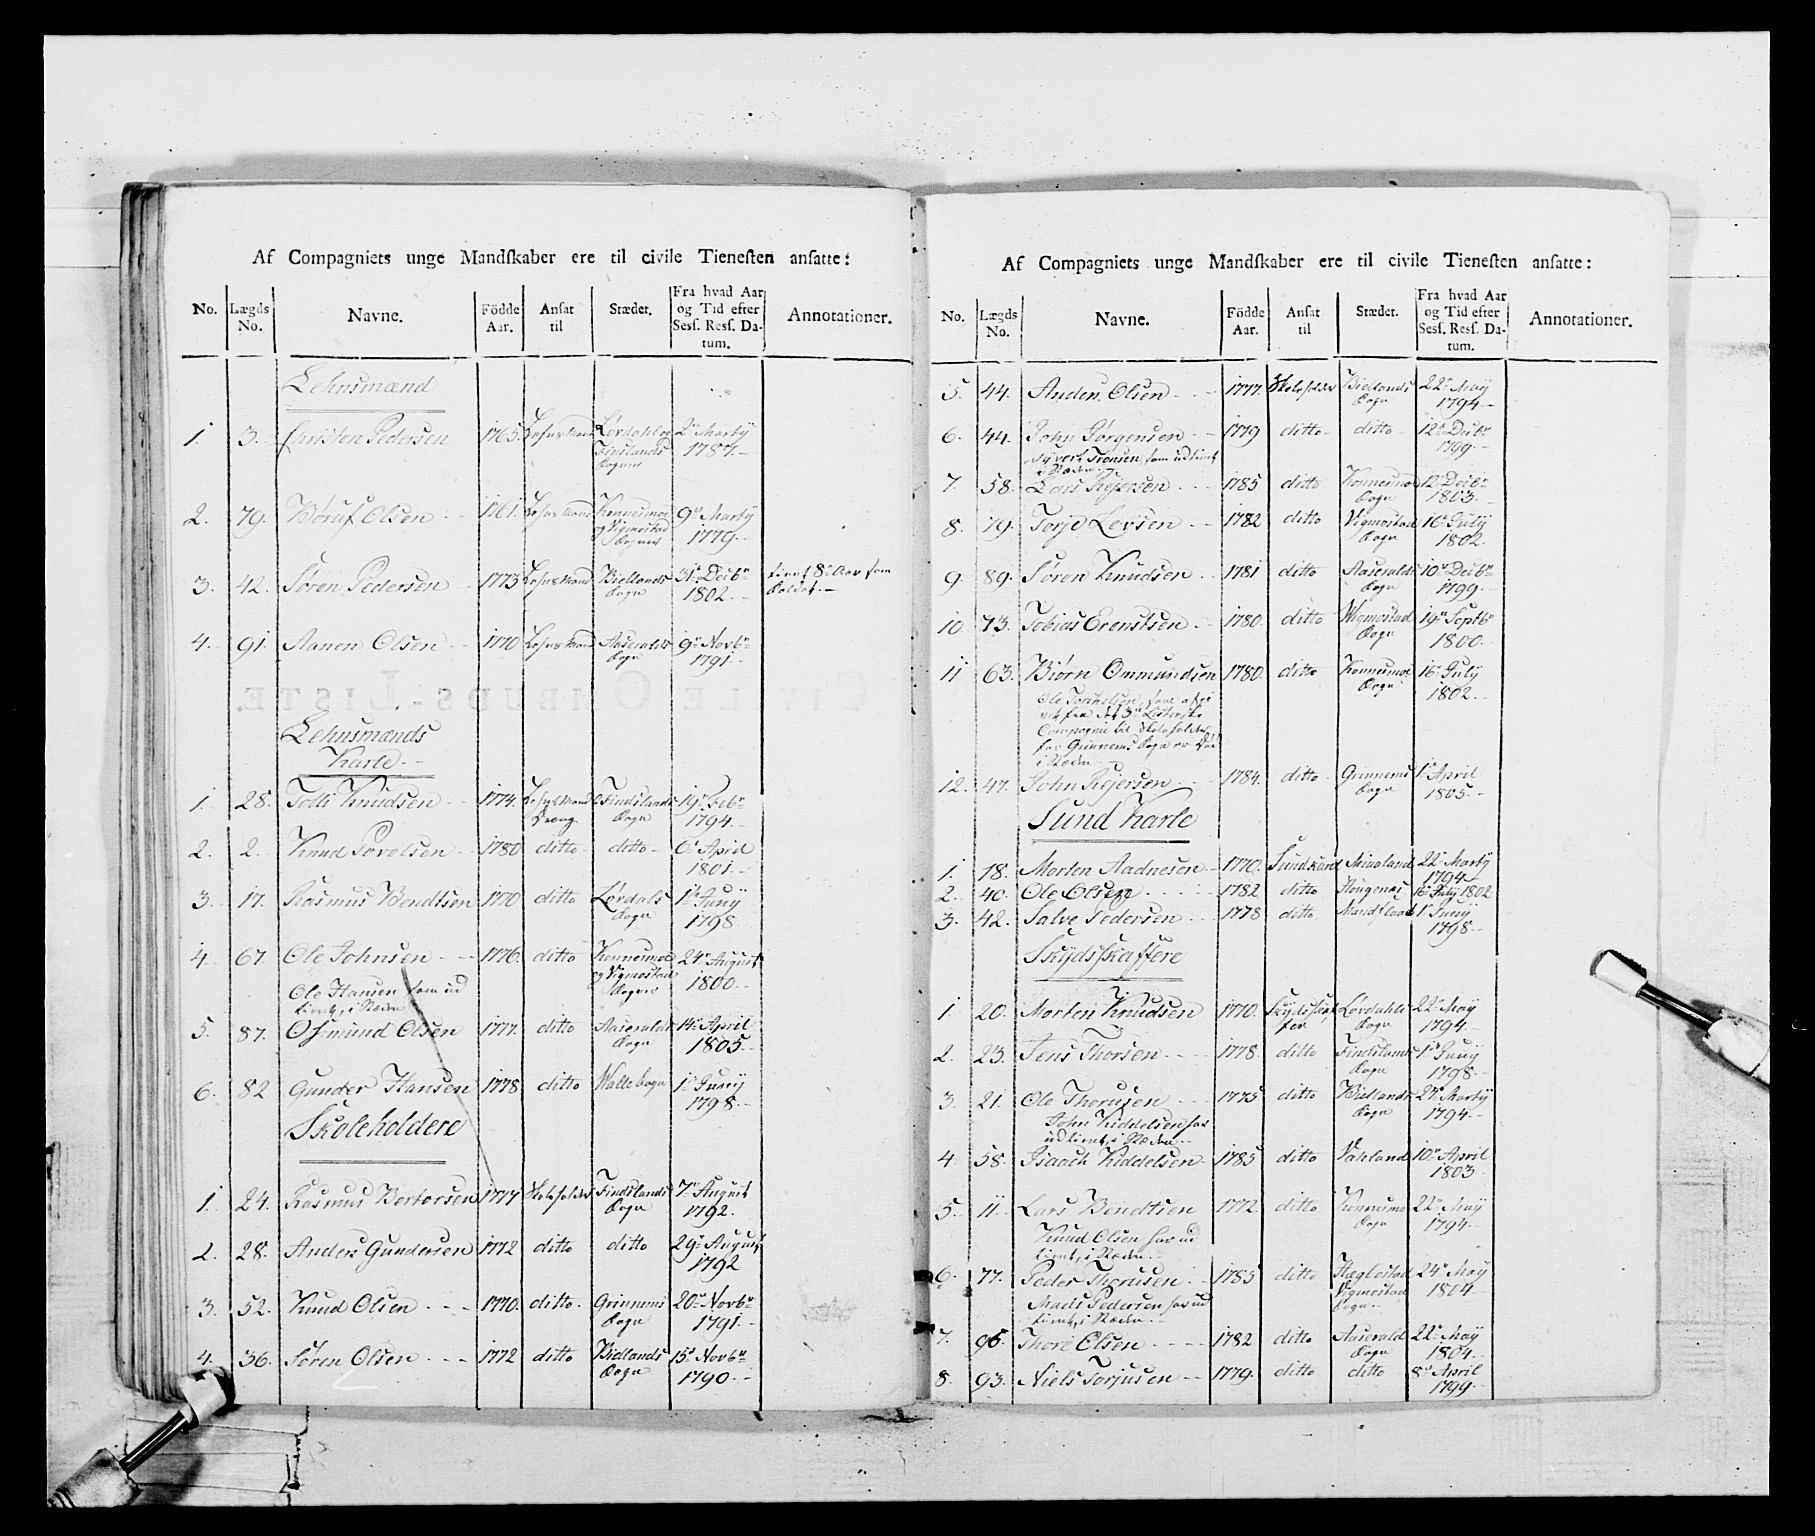 Af Compagniets unge Mandſkaber ere til civile Tieneſten anſatte:
No. Lægds No. Navne. Födde Aar. Anſat til Stædet. Fra hvad Aar og Tid efter Seſſ. Reſſ. Datum. Annotationer.
Lehnsmænd
1. 3. Christen Pedersen 1765. Lehnsmand Lørdahls og Findslands Sogner 2den Marty 1787.
2. 79. Børuf Olsen 1761. Lehnsmand Konnesmoe og Vigmostad Sogner 9de Marty 1779.
3. 42. Søren Pedersen 1773 Lehnsmand Bielands Sogn 31te Decbr 1802. tient 8te Aar som Soldat.
4. 91. Aanen Olsen 1770 Lehnsmand Aaseralds Sogn 9de Novbr 1791.
CIVILE OMBUDS-LISTE.
Lehnsmænds
Karle
1. 28. Tolli Knudsen 1774. Lehnsmands Dreng Findslands Sogn 19de Febr 1794.
2. 2. Knud Sørelsen 1780 ditto ditto 6te April 1801.
3. 17. Rasmus Bendtsen 1770 ditto Lørdals Sogn 1te Juny 1798.
4. 67. Ole Johnsen 1776. ditto Konnesmoe og Vigmostad Sogner 24de August 1800.
Ole Hansen som ud
tient, i Stæden
5. 87. Osmund Olsen 1777. ditto Aaseralds Sogn 14de April 1805.
6. 82 Gunder Hansen 1778 ditto Halle Sogn 1te Juny 1798.
Skoleholdere
1. 24. Rasmus Bertorsen 1777 Skoleholder Findslands Sogn 7de August 1792.
2. 28. Anders Gundersen 1772 ditto ditto 29de August 1792
3. 52. Knud Olsen 1770. ditto. Grinnems Sogn 20de Novbr 1791.
4. 36. Søren Olsen 1772 ditto Bielands Sogn 15de Novbr 1790.
Af Compagniets unge Mandſkaber ere til civile Tieneſten anſatte:
No. Lægds No. Navne. Födde Aar. Anſat til Stædet. Fra hvad Aar og Tid efter Seſſ. Reſſ. Datum. Annotationer.
5. 44. Anders Olsen 1777. Skoleholder Bielands Sogn 22de May 1794
6. 44. John Jørgensen 1779 ditto ditto 12te Decbr 1799.
Syvert Tronsen som udtient
i Stæden
7. 58. Lars Rejersen 1785 ditto Konnesmoe Sogn 12te Decbr 1803.
8. 79. Torje Levsen 1782 ditto Vigmostad Sogn 16de July 1802.
9. 89. Søren Knudsen 1781 ditto Aaseralds Sogn 10de Decbr 1799.
10. 73. Tobias Erenstsen 1780. ditto Wigmostad Sogn 19de Septbr 1800.
11 63. Biørn Ommundsen 1780. ditto Konnesmoe Sogn 16de July 1802.
Ole Torkelsen, som afgi
vet fra det 3de Listerske
Compagnie til Skoleholder
for Grinnems Sogn er Død
i Stæden
12. 47. John Rejersen 1784. ditto Grinnems Sogn 1te April 1805.
Sund Karle
1. 18. Morten Aadnesen 1770. Sundkarl Miaaland 22de Marty 1794
2. 40. Ole Olsen 1782 ditto Hougenas 16de July 1802
3. 42. Salve Pedersen 1778 ditto 1te Juny 1798
Skydsskaffere
1 20. Morten Knudsen 1770. Skydsskaffer Lørdahls Sogn 22de May 1794.
2. 23. Jens Thorsen 1778. ditto Findslands Sogn 1te Juny 1798.
3. 21. Ole Thorusen 1775 ditto Bielands Sogn 27de Marty 1794.
John Kiddelsen har
udtient, i Stæden
4. 58. Isaach Kiddelsen 1785 ditto Vahland 10de April 1803.
5. 11. Lars Bendtsen 1772. ditto Konnesmo Sogn 22de May 1794.
Knud Olsen har ud
tient, i Stæden
6. 77. Peder Thorusen 1785 ditto Hæglestad Vigmostad Sogn. 24de May 1804.
Mads Pedersen har ud
tient, i Stæden
7. 96. Thore Olsen 1782 ditto Aaserald Sogn 22de May 1804.
8. 93. Niels Torjusen 1779. ditto ditto 8de April 1799.